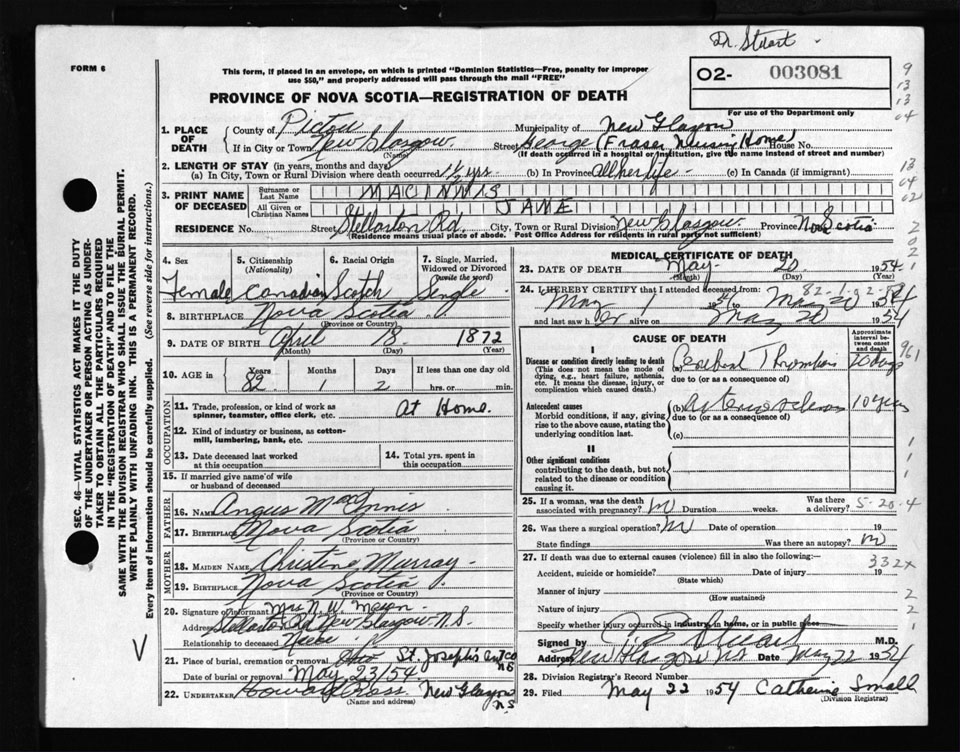 Dr. Stuart
FORM 6
This form, if placed in an envelope, on which is printed "Dominion Statistics—Free, penalty for improper
use $50," and properly addressed will pass through the mail "FREE"
02- 003081
PROVINCE OF NOVA SCOTIA—REGISTRATION OF DEATH
For use of the Department only
9
13
13
04
1. PLACE OF DEATH
County of Pictou Municipality of New Glasgow
If in City or Town New Glasgow (Name) Street George (Fraser Nursing Home) House No.
(If death occurred in a hospital or institution, give the name instead of street and number)
2. LENGTH OF STAY (in years, months and days)
(a) In City, Town or Rural Division where death occurred 1½ yrs (b) In Province All her life (c) In Canada (if immigrant)
13
04
02
3. PRINT NAME OF DECEASED
Surname or Last Name MACINNIS
All Given or Christian Names JANE
RESIDENCE No. Street Stellarton Rd. City, Town or Rural Division New Glasgow Province Nova Scotia
(Residence means usual place of abode. Post Office Address for residents in rural parts not sufficient)
2
0
2
2
4. Sex 5. Citizenship (Nationality) 6. Racial Origin 7. Single, Married, Widowed or Divorced (write the word)
Female Canadian Scotch Single
8. BIRTHPLACE Nova Scotia
(Province or Country)
9. DATE OF BIRTH April 18 1872
(Month) (Day) (Year)
10. AGE in Years Months Days If less than one day old
82 1 2 hrs. or min.
OCCUPATION
11. Trade, profession, or kind of work as spinner, teamster, office clerk, etc. At Home.
12. Kind of industry or business, as cotton-mill, lumbering, bank, etc.
13. Date deceased last worked at this occupation 14. Total yrs. spent in this occupation
15. If married give name of wife or husband of deceased
FATHER
16. NAME Angus MacInnis
17. BIRTHPLACE Nova Scotia
(Province or Country)
MOTHER
18. MAIDEN NAME Christine Murray
19. BIRTHPLACE Nova Scotia
(Province or Country)
20. Signature of informant Mrs. N. W. Mason
Address Stellarton Rd New Glasgow N.S.
Relationship to deceased Niece
21. Place of burial, cremation or removal St. Joseph's Ant Co NS
Date of burial or removal May 23/54
22. UNDERTAKER Ross New Glasgow N.S
(Name and address)
MEDICAL CERTIFICATE OF DEATH
23. DATE OF DEATH May 20 1954
(Month) (Day)
24. I HEREBY CERTIFY that I attended deceased from 82-1-02-
May 1 54 to May 20 1954
and last saw her alive on May 20 1954
CAUSE OF DEATH
Approximate interval between onset and death
I
Disease or condition directly leading to death
(This does not mean the mode of dying, e.g., heart failure, asthenia, etc. It means the disease, injury, or complication which caused death.)
(a) Cerebral Thrombosis 20 days
due to (or as a consequence of)
961
Antecedent causes
Morbid conditions, if any, giving rise to the above cause, stating the underlying condition last.
(b) Arteriosclerosis 10 years
due to (or as a consequence of)
(c)
II
Other significant conditions
contributing to the death, but not related to the disease or condition causing it.
1
1
1
25. If a woman, was the death associated with pregnancy? N Duration weeks. Was there a delivery? 5-20-4
26. Was there surgical operation? N Date of operation 19
State findings Was there an autopsy? N
27. If death was due to external causes (violence) fill in also the following:—
332x
Accident, suicide or homicide? Date of injury 19
(State which)
Manner of injury 2
(How sustained)
Nature of injury 2
Specify whether injury occurred in industry, in home, or in public place 1
Signed by Stuart M.D.
Address New Glasgow NS Date May 22 1954
28. Division Registrar's Record Number
29. Filed May 22 1954 Catherine Small
(Division Registrar)
SEC. 46—VITAL STATISTICS ACT MAKES IT THE DUTY
OF THE UNDERTAKER OR PERSON ACTING AS UNDER-
TAKER TO OBTAIN ALL THE PARTICULARS REQUIRED
IN THE "REGISTRATION OF DEATH" AND TO FILE THE
SAME WITH THE DIVISION REGISTRAR WHO SHALL ISSUE THE BURIAL PERMIT.
WRITE PLAINLY WITH UNFADING INK. THIS IS A PERMANENT RECORD.
Every item of information should be carefully supplied. (See reverse side for instructions.)